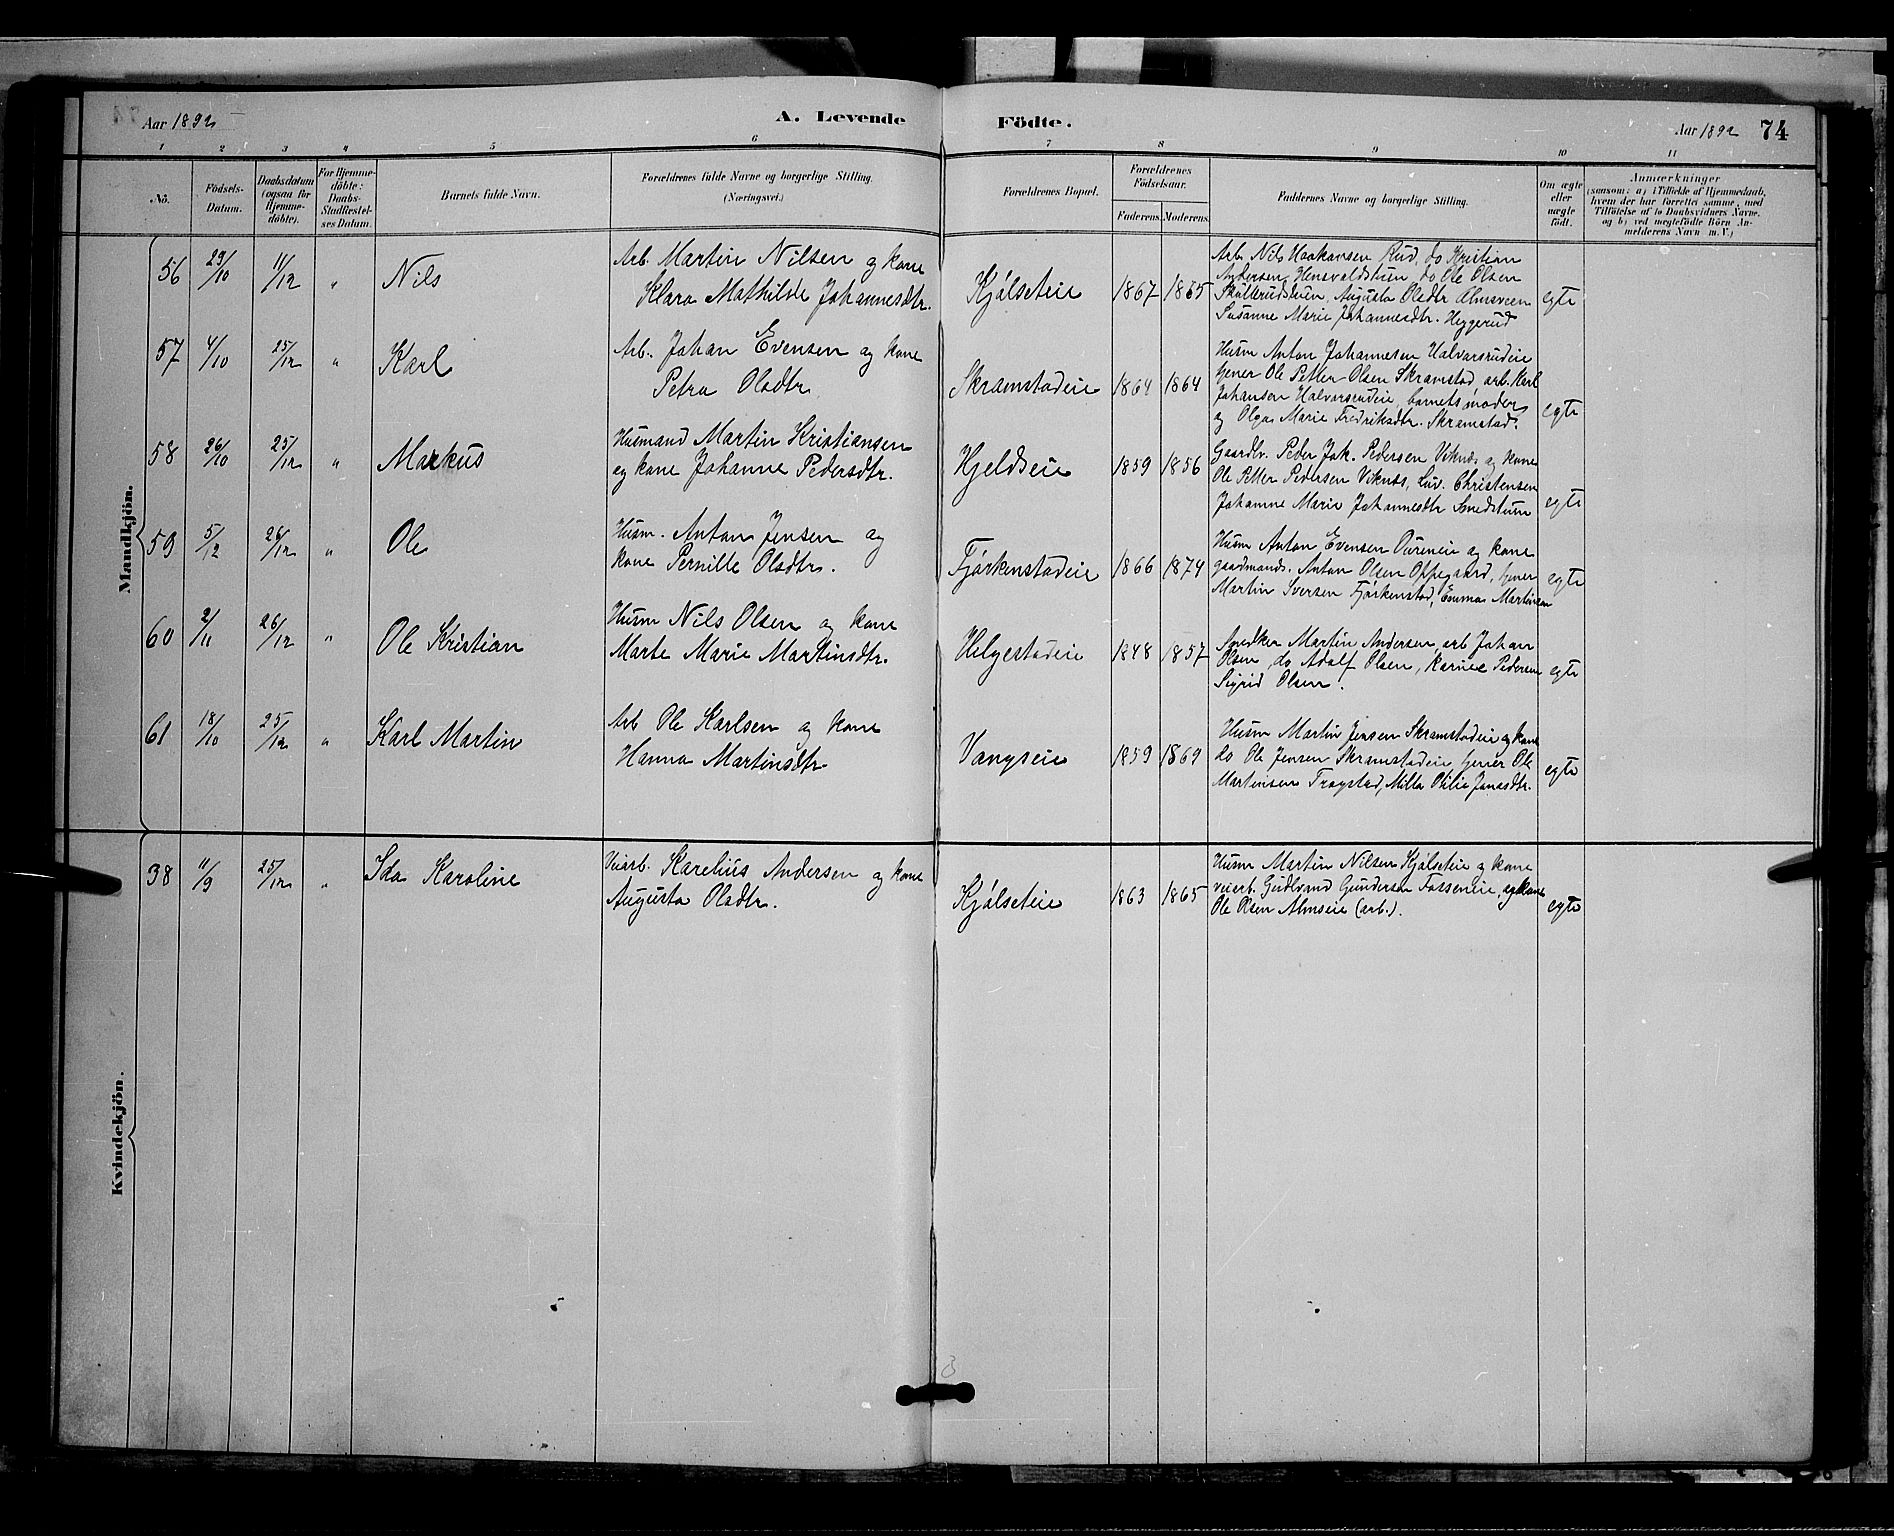 Aar 1892 A. Levende Födte. Aar 1892 74
1 2 3 4 5 6 7 8 9 10 11
No.
Födsels-
Datum.
Daabsdatum
(ogsaa for
Hjemme-
döbte).
For Hjemme-
döbte:
Daabs-
Stadfæstel-
ses Datum.
Barnets fulde Navn.
Forældrenes fulde Navne og borgerlige Stilling.
(Næringsvei.)
Forældrenes Bopæl.
Forældrenes
Födselsaar.
Faderens. Moderens.
Faddernes Navne og borgerlige Stilling.
Om ægte
eller
uægte
födt.
Anmærkninger
(saasom: a) i Tilfælde af Hjemmedaab,
hvem der har forrettet samme, med
Tilföielse af to Daabsvidners Navne,
og b) ved uægtefödte Börn An-
melderens Navn m. V.)
Mandkjön.
56 29/10 11/12 " Nils
Arb. Martin Nilsen og kone
Klara Mathilde Johannesdtr.
Kjölseteie 1867 1865
Arb. Nils Haakonsen Rud, do Kristian
Andersen Hensvoldstuen, do Ole Olsen
Sköllerudstuen, Augusta Olsdtr Almsveen
Susanne Marie Johannesdtr. Heggerud
egte
57 4/10 25/12 " Karl
Arb. Johan Evensen og kone
Petra Olsdtr.
Skramstadeie 1864 1864
Husm Anton Johannesen Halvorsrudeie
Gener Ole Petter Olsen Skramstad, arb. Karl
Johansen Halvorsrudeie, barnets moder
og Olga Marie Fredriksdtr. Skramstad.
egte
58 26/10 25/12 " Markus
Husmand Martin Kristiansen
og kone Johanne Pedersdtr.
Hjeldseie 1859 1856
Gaardbr. Peder Joh. Pedersen Viknæs og kone
Ole Petter Pedersen Viknæs, Lov. Christensen
Johanne Marie Johannesdtr Smedstuen
egte
59 5/12 26/12 " Ole
Husm. Anton Jensen og
kone Pernille Olsdtr.
Fjørkenstadeie 1866 1874
Husm Anton Evensen Oureneie og kone
gaardmands. Anton Olsen Oppegaard,
Martin Iversen Fjørkenstad, Emma Martinsen
egte
60 2/11 26/12 " Ole Kristian
Husm Nils Olsen og kone
Marte Marie Martinsdtr.
Helgestadeie 1848 1857
Snedker Martin Andersen, arb Johan
Olsen, do Adolf Olsen, Karine Pedersen
Sigrid Olsen.
egte
61 18/10 25/12 " Karl Martin
Arb Ole Karlsen og kone
Hanna Martinsdtr
Vangseie 1859 1869
Husm Martin Jensen Skramstadeie og kone
do Ole Jensen Skramstadeie, Gener Ole
Martinsen Trogstad, Milla Otilie Jonasdtr.
egte
Kvindekjön.
38 11/9 25/12 " Ida Karoline
Veiarb. Karelius Andersen og kone
Augusta Olsdtr.
Kjölseteie 1863 1865
Husm Martin Nilsen Kjölseteie og kone
veiarb. Gudbrand Gundersen Fosseneie, og kone
Ole Olsen Almseie (arb.).
egte